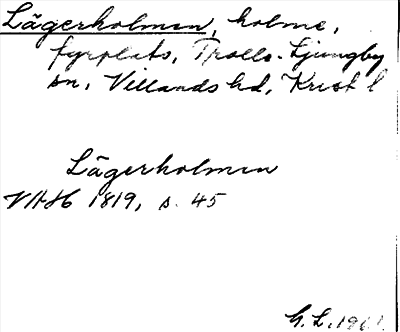 Lägerholmen, holme,
fyrplats, Trolle-Ljungby
sn, Villands hd, Krist l
Lägerholmen
VAH 1819, s. 45
G. L. 196